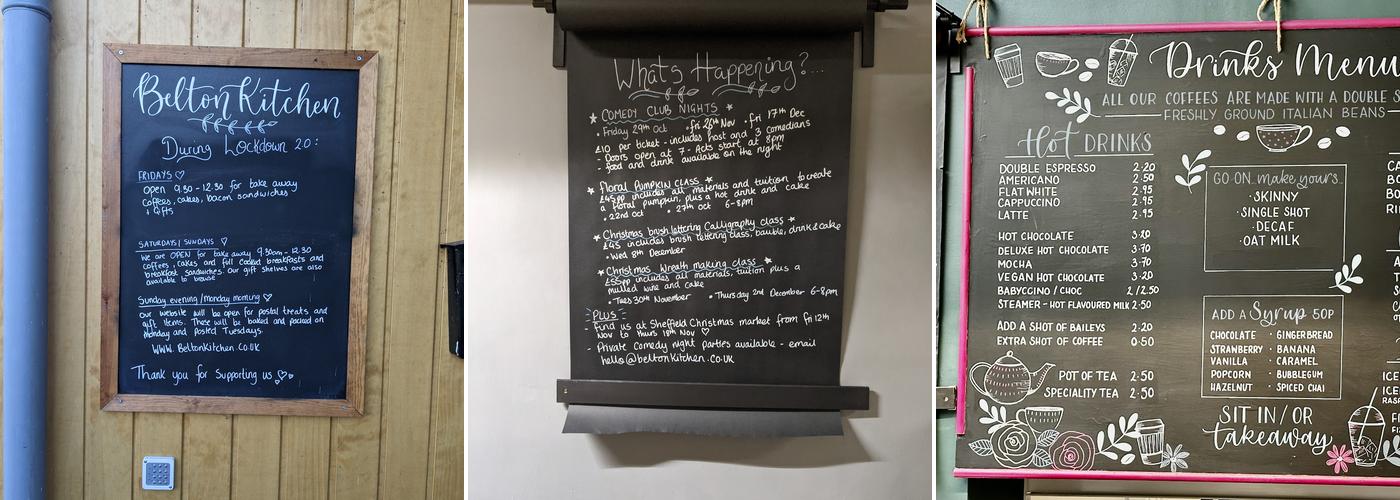 Belton Kitchen
During Lockdown 2.0:
FRIDAYS ♡
Open 9.30 - 12.30 for take away
coffees, cakes, bacon sandwiches
+ Gifts
SATURDAYS / SUNDAYS ♡
We are OPEN for take away 9.30am - 12.30
coffees, cakes and full cooked breakfasts and
breakfast sandwiches. Our gift shelves are also
available to browse
Sunday evening / monday morning ♡
Our website will be open for postal treats and
gift items. These will be baked and packed on
Monday and posted Tuesdays.
WWW. BeltonKitchen.co.uk
Thank you for supporting us ♡
What's Happening?...
COMEDY CLUB NIGHTS
• Friday 29th Oct • fri 26th Nov • fri 17th Dec
£10 per ticket - includes host and 3 comedians
- Doors open at 7 - Acts start at 8pm
- food and drink available on the night
Floral Pumpkin class
£45pp includes all materials and tuition to create
a floral pumpkin, plus a hot drink and cake
• 22nd oct • 27th oct 6-8pm
Christmas brush lettering Calligraphy class
£45 includes brush lettering class, bauble, drink & cake
• Wed 8th December
Christmas Wreath making class
£55pp includes all materials, tuition plus a
mulled wine and cake
• Tues 30th November • Thursday 2nd December 6-8pm
PLUS
- Find us at Sheffield Christmas market from fri 12th
Nov to Thurs 18th Nov ♡
- Private Comedy night parties available - email
hello@beltonkitchen.co.uk
Drinks Menu
ALL OUR COFFEES ARE MADE WITH A DOUBLE
FRESHLY GROUND ITALIAN BEANS
Hot DRINKS
DOUBLE ESPRESSO 2·20
AMERICANO 2·50
FLAT WHITE 2·95
CAPPUCCINO 2·95
LATTE 2·95
HOT CHOCOLATE 3·20
DELUXE HOT CHOCOLATE 3·70
MOCHA 3·70
VEGAN HOT CHOCOLATE 3·20
BABYCCINO / CHOC 2 / 2.50
STEAMER - HOT FLAVOURED MILK 2·50
ADD A SHOT OF BAILEYS 2·20
EXTRA SHOT OF COFFEE 0·50
POT OF TEA 2·50
SPECIALITY TEA 2·50
GO ON... make yours...
· SKINNY
· SINGLE SHOT
· DECAF
· OAT MILK
ADD A Syrup 50P
CHOCOLATE · GINGERBREAD
STRAWBERRY · BANANA
VANILLA · CARAMEL
POPCORN · BUBBLEGUM
HAZELNUT · SPICED CHAI
SIT IN / OR
takeaway